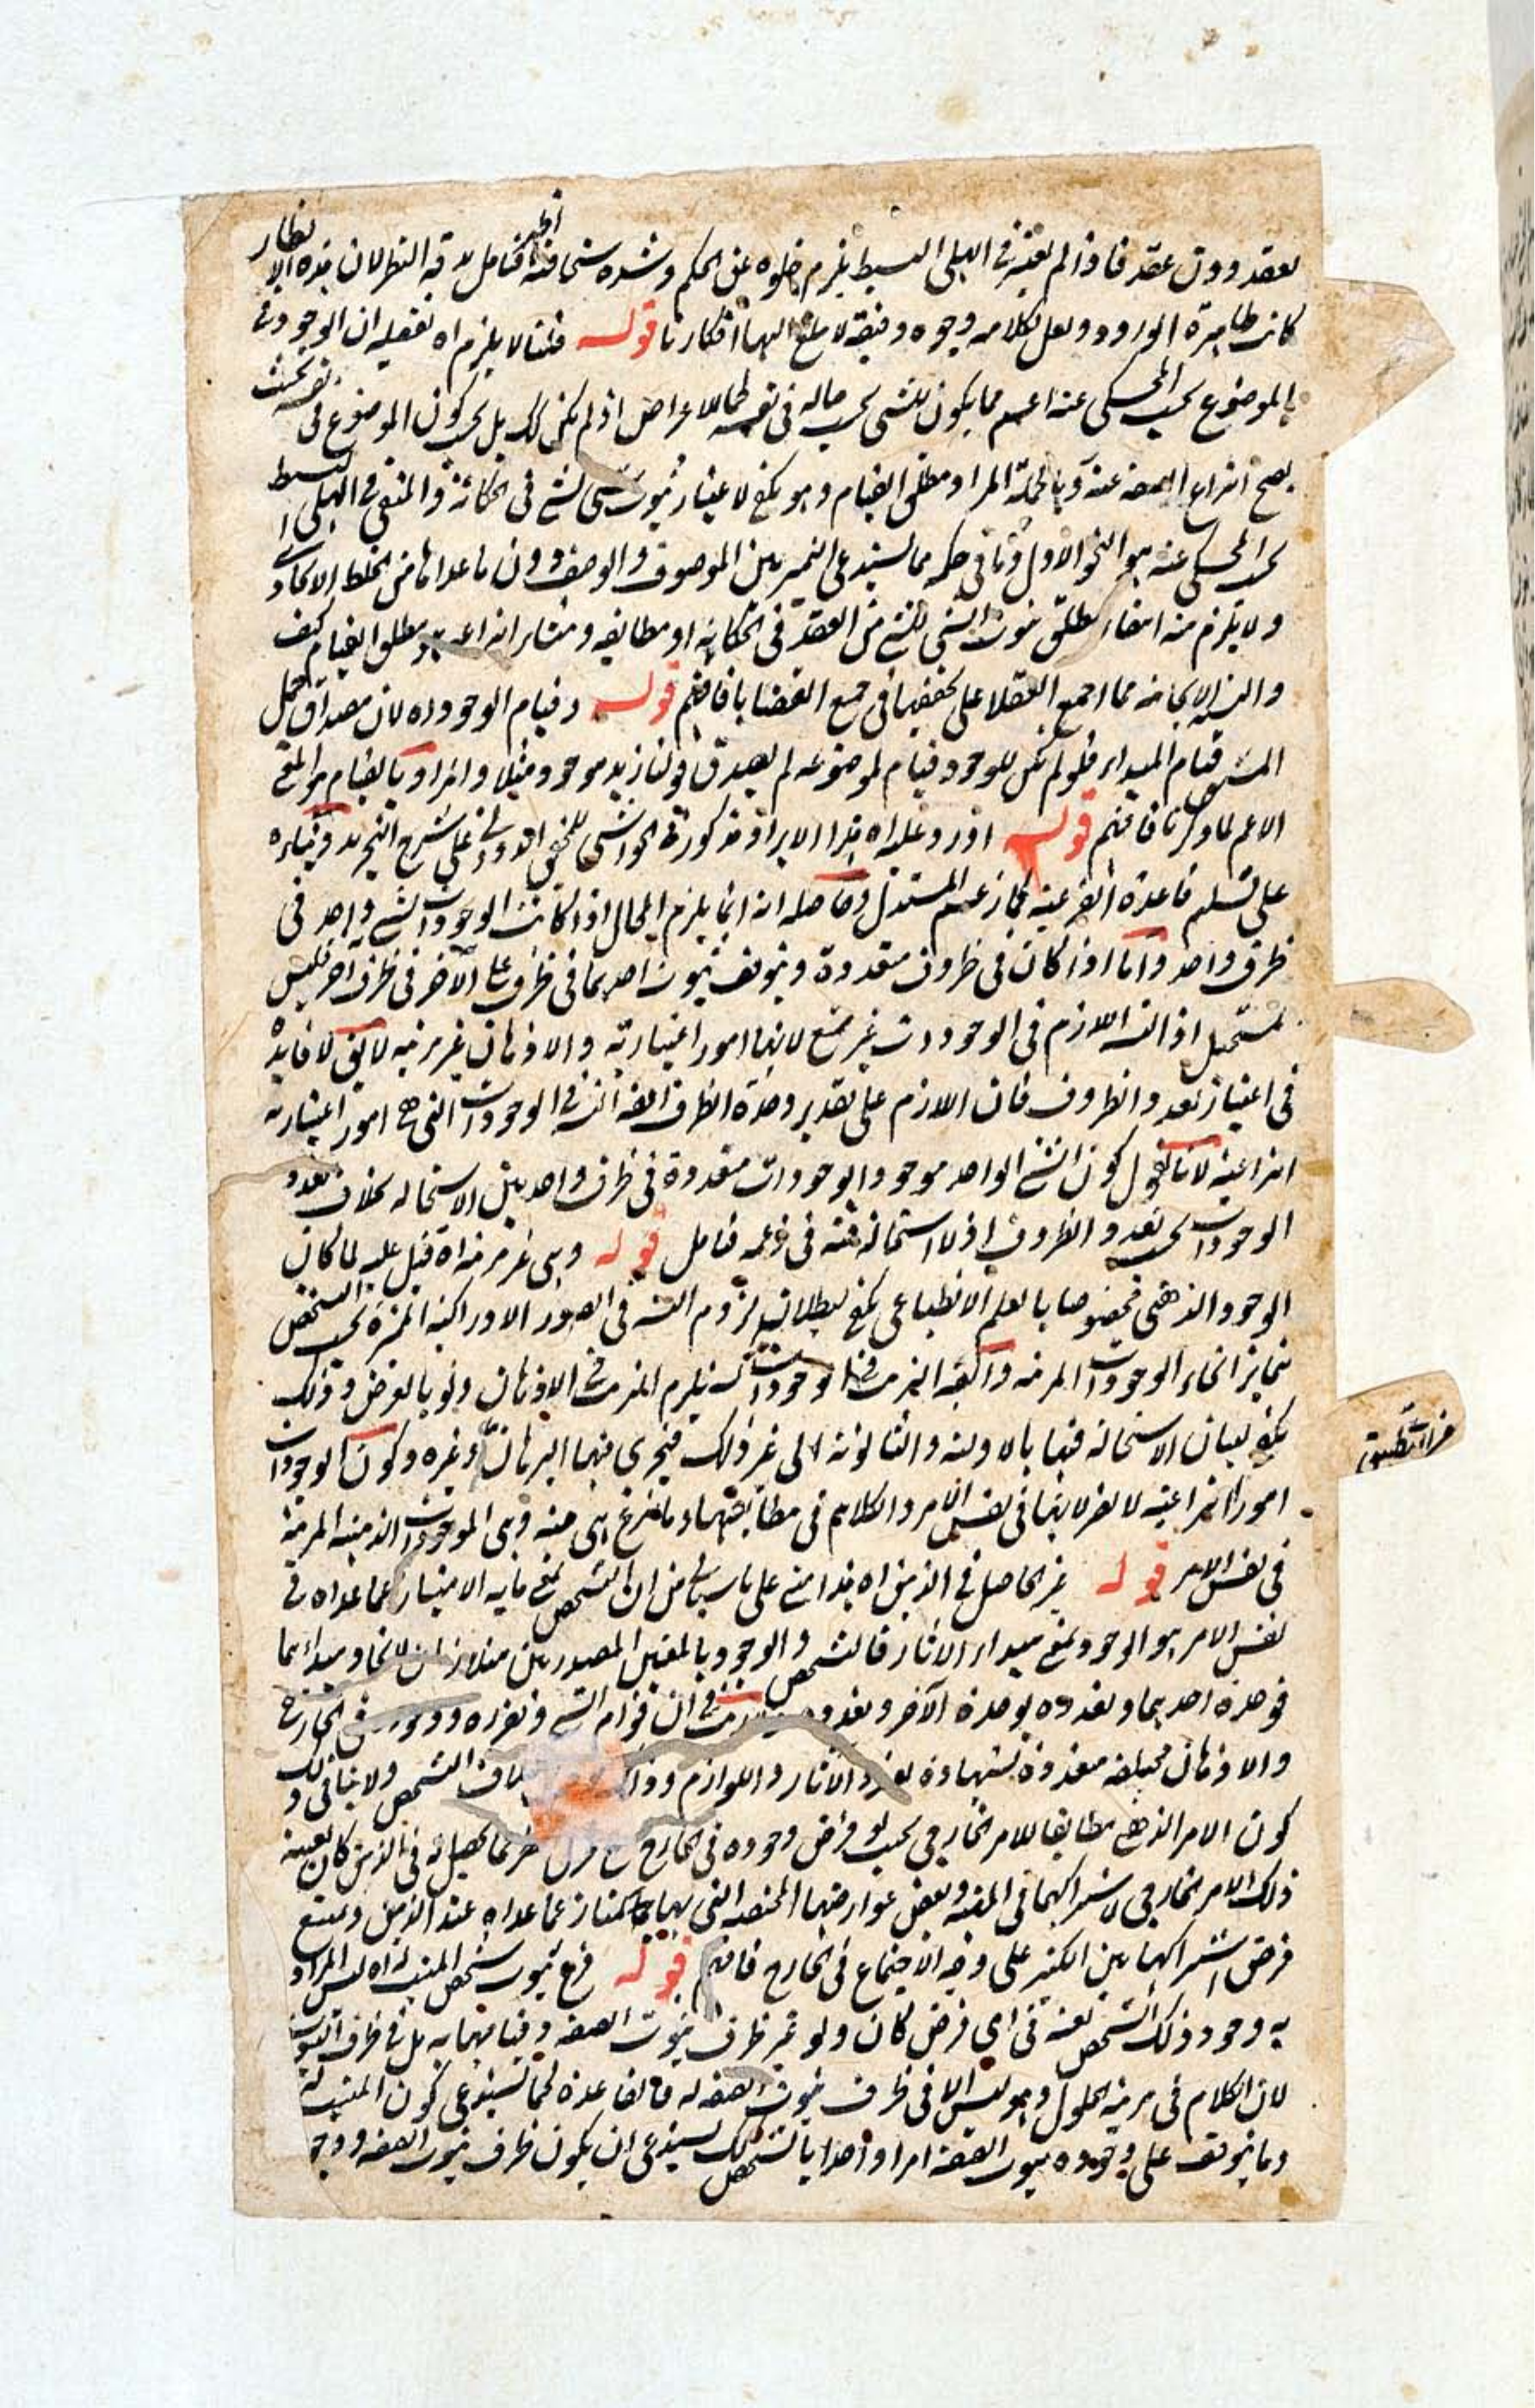 بعقد دون عقد فاذا لم يعتبر في الهلي البسيط يلزم خلوه عن الحكم وشده سخافته فتامل بدقة النظر لان هذه الانظار
كانت ظاهرة الورود ولعل لكلامه وجوه دقيقة لا يبلغ اليها افكارنا قوله قلنا لا يلزم اه تفصيله ان الوجود
بالموضوع بحسب المحكى عنه اعم مما يكون للشى بحسب حاله في نفسه كما للاعراض اذ لم يكن كذلك بل بحسب كون الموضوع في نفسه بحيث
يصح انتزاع الصفة عنه وبالجملة المراد مطلق القيام وهو يكفى لاعتبار ثبوت شى لشى في الحكاية والمنفى في الهلي البسيط
بحسب المحكى عنه هو النحو الاول وما في حكمه مما يستدعى التميز بين الموصوف والوصف دون ما عداها من الخلط الاتحادى
ولا يلزم منه انتفاء مطلق ثبوت الشى للشى من العقد في الحكاية او مطابقه ومنشا انتزاعه مطلق القيام كيف
والنسبة الايجابية مما اجمع العقلا على تحققها في جميع القضايا فافهم قوله وقيام الوجود اه لان مصداق حمل
المشتق قيام المبدا فلو لم يكن للوجود قيام لموضوعه لم يصدق قولنا زيد موجود مثلا والمراد بالقيام هو المعنى
الاعم لما ذكرنا فافهم قوله اورد عليه اه هذا الايراد مذكور في الحواشى للمحقق الدوانى على شرح التجريد وبناءه
على تسليم قاعدة الفرعية كما زعم المستدل وحاصله انه انما يلزم المحال اذا كانت الوجودات لشى واحد في
ظرف واحد واما اذا كان في ظروف متعددة ويتوقف ثبوت احدهما في ظرف على الآخر في ظرف آخر فليس
بمستحيل اذ التسلسل اللازم في الوجودات غير ممتنع لانها امور اعتبارية والاذهان غير مرتبه لا يقال لا فايدة
في اعتبار تعدد الظروف فان اللازم على تقدير وحدة الظرف ايضا التسلسل في الوجودات التى هى امور اعتبارية
انتزاعية لانا نقول كون الشى الواحد موجودا بوجودات متعددة في ظرف واحد بين الاستحاله بخلاف تعدد
الوجودات بحسب تعدد الظروف اذ لا استحالة فيه في زعمه فتامل قوله وهى غير مرتبة اه قيل عليه لما كان
الوجود الذهنى مخصوصا بالعلم الانطباعى يكفى لبطلانه لزوم التسلسل في الصور الادراكية المتميزة بحسب التشخص
بتمايز انحاء الوجودات المرتبه والحق الترتب في الوجودات يلزم الترتب في الاذهان ولو بالعرض وذلك
يكفى لبيان الاستحاله فيها بالاولية والثانوية الى غير ذلك فيجرى فيها البرهان وغيره وكون الوجودات
امورا انتزاعية لا يضر لانها في نفس الامر والكلام في مطابقتها وما ينتزع هى منه وهى الموجودات الذهنية المرتبة
في نفس الامر قوله غير الحاصل في الذهن اه هذا مبنى على ما سياتى من ان التشخص بمعنى ما به الامتياز عما عداه في
نفس الامر هو الوجود بمعنى مبداء الاثار فالتشخص والوجود بالمعنيين المصدرين متلازمان لاتحاد مبدائهما
فوحدة احدهما وتعدده بوحدة الآخر وتعدده ولا ريب في ان قوام الشى وتقرره ووجوده في الخارج
والاذهان مختلفة متعددة بشهادة تعدد الاثار واللوازم وذلك اختلاف التشخص ولا ينافى ذلك
كون الامر الذهنى مطابقا للامر الخارجى بحيث لو فرض وجوده في الخارج كما يحصل له في الذهن كان بعينه
ذلك الامر الخارجى لاشتراكهما في المهية وبعض عوارضها المختصة التى بها يمتاز عما عداه عند الذهن ويمتنع
فرض اشتراكها بين الكثير على وجه الاجتماع في الخارج فافهم قوله فرع ثبوت تشخص المثبت له اه ليس المراد
به وجود ذلك التشخص بعينه في اى فرض كان ولو غير ظرف ثبوت الصفه وقيامها به بل في ظرف الثبوت
لان الكلام في مرتبة الحلول وهو ليس الا في ظرف ثبوت الصفه له فالقاعدة كما تستدعى كون المثبت له
وما يتوقف على وجوده ثبوت الصفة امرا واحدا بالتشخص كذلك يستدعى ان يكون ظرف ثبوت الصفه ووجو